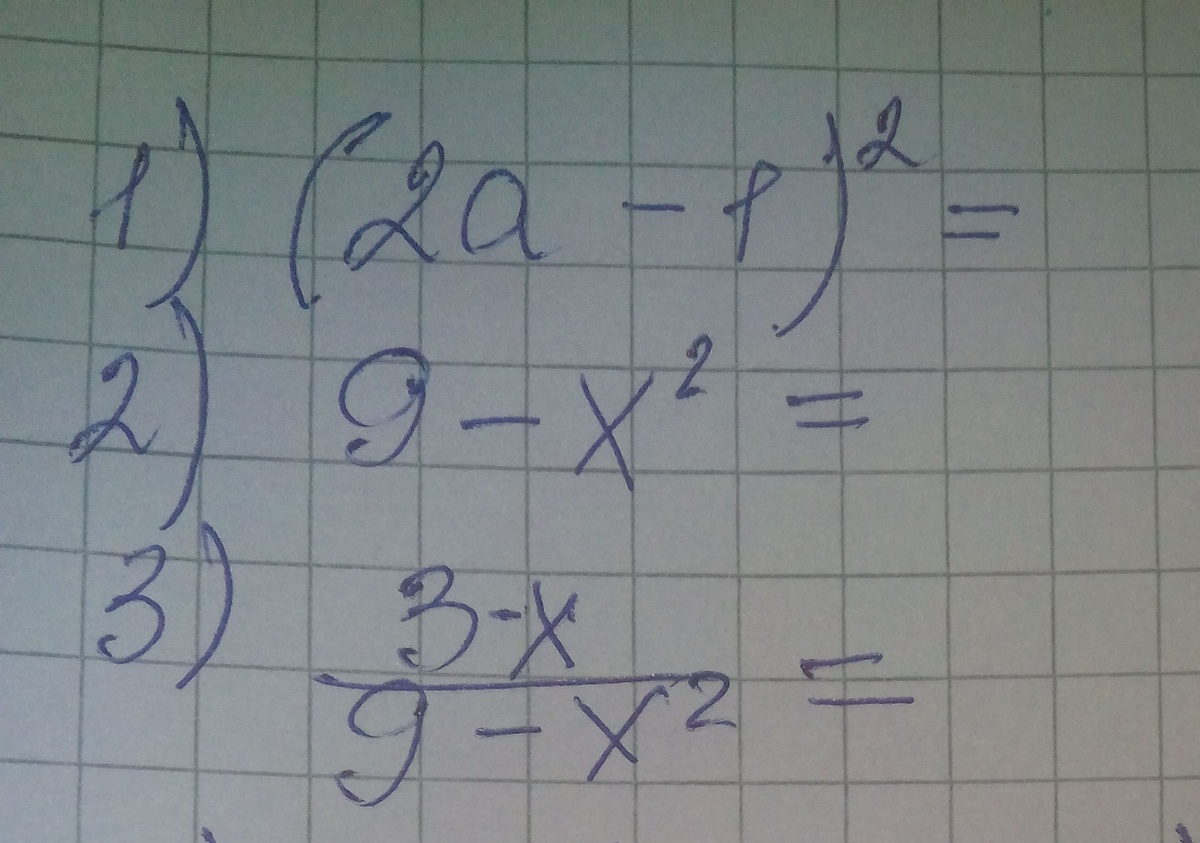 1) (2a - 1)² =
2) 9 - x² =
3) \frac{3-x}{9-x²} =